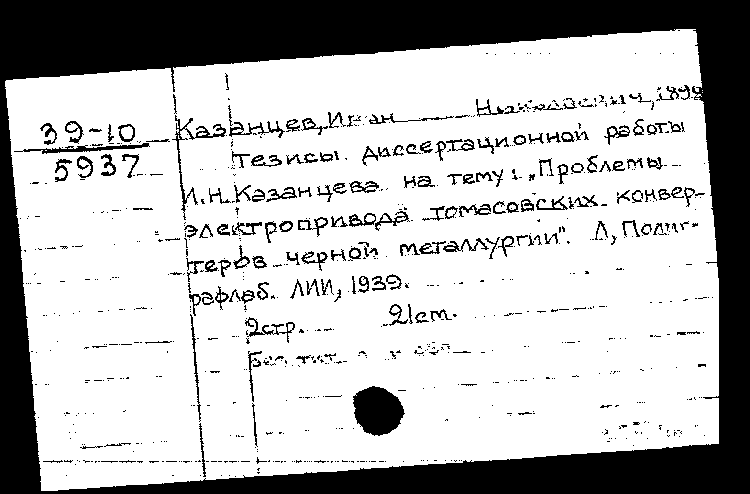 39-10
5937
Казанцев, Иван Николаевич, 1898
Тезисы диссертационной работы
И.Н. Казанцева на тему: „Проблемы
электропривода томасовских конвер-
теров черной металлургии". Л, Полиг-
рафлаб. ЛИИ, 1939.
2стр. 21см.
Без тит. л. и обл.